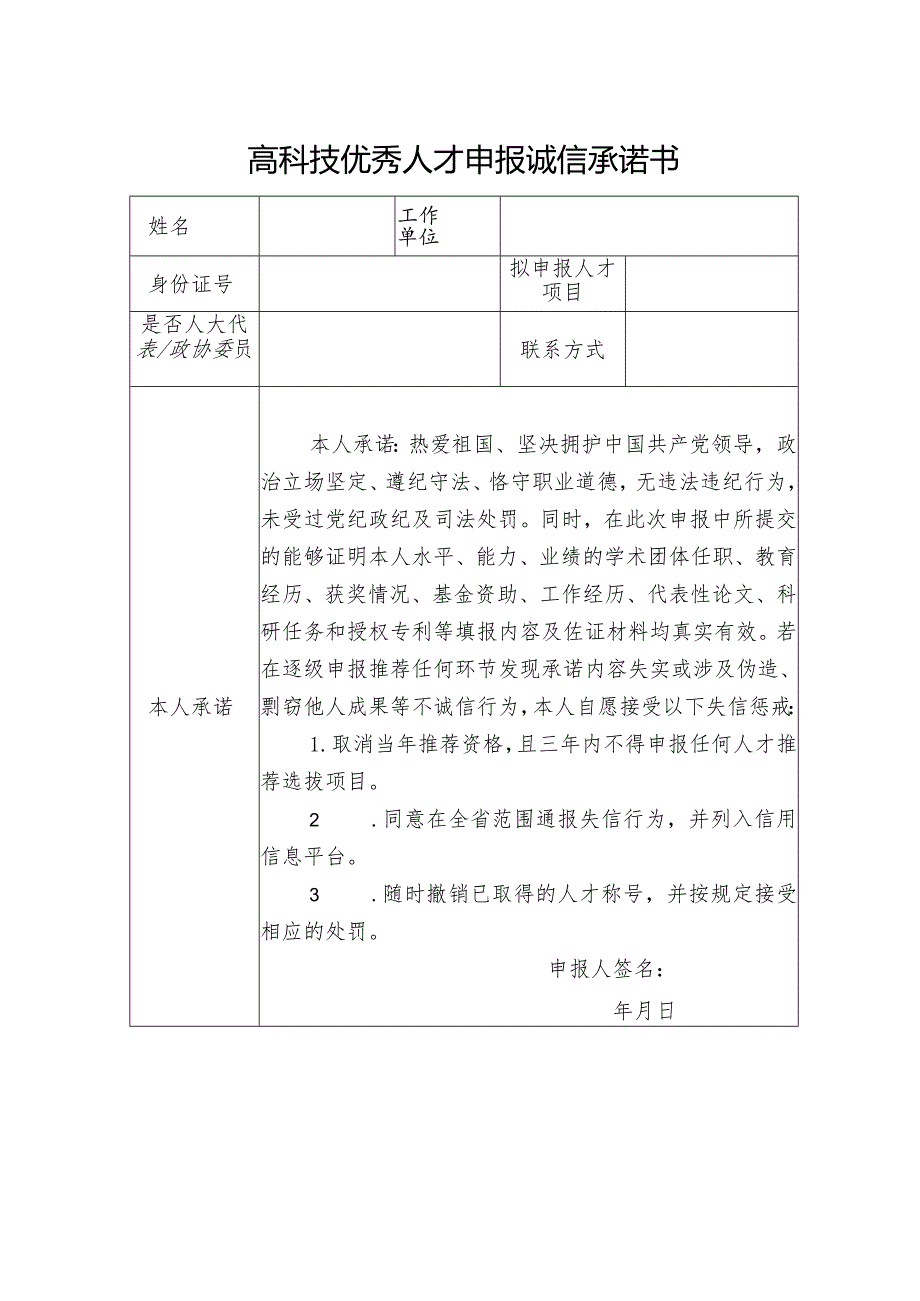 高科技优秀人才申报诚信承诺书
姓名
工作
单位
身份证号
拟申报人才
项目
是否人大代
表/政协委员
联系方式
本人承诺
本人承诺：热爱祖国、坚决拥护中国共产党领导，政
治立场坚定、遵纪守法、恪守职业道德，无违法违纪行为，
未受过党纪政纪及司法处罚。同时，在此次申报中所提交
的能够证明本人水平、能力、业绩的学术团体任职、教育
经历、获奖情况、基金资助、工作经历、代表性论文、科
研任务和授权专利等填报内容及佐证材料均真实有效。若
在逐级申报推荐任何环节发现承诺内容失实或涉及伪造、
剽窃他人成果等不诚信行为，本人自愿接受以下失信惩戒：
1.取消当年推荐资格，且三年内不得申报任何人才推
荐选拔项目。
2 .同意在全省范围通报失信行为，并列入信用
信息平台。
3 .随时撤销已取得的人才称号，并按规定接受
相应的处罚。
申报人签名：
年月日